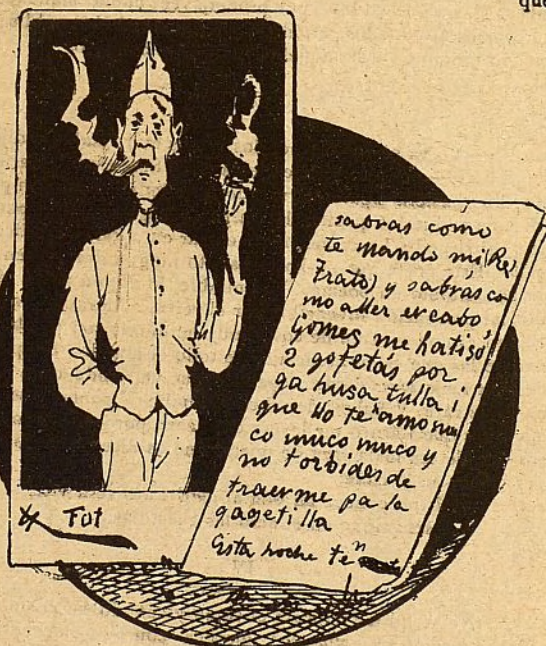 que
sabras como
te mando mi (Re)
trato) y sabras co
mo aller er cabo
Gomes me ha tiso
2 gofetás por
ga husa tulla i
que llo te amo mu
co muco muco y
no torbides de
traerme pa la
gagetilla
Esta noche te
Fot